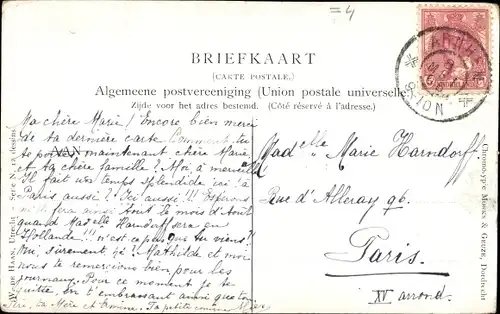 =4
BRIEFKAART
(CARTE POSTALE.)
Algemeene postvereeniging (Union postale universelle)
Zijde voor het adres bestemd. (Côté réservé à l'adresse.)
Ma chère Marie! Encore bien merci
de ta dernière carte. Comment tu
te portes maintenant chère Marie
AAN
et ta chère famille? Moi à merveille
Il fait un temps splendide ici à
Paris aussi? Ici aussi!!! Espérons
fera ainsi tout le mois d'Août
quand Mad elle Harndorff sera en
Hollande!!! n'est ce pas que tu viens?
Oui, sûrement! Mathilde et moi
nous te remercions bien pour les
journaux. Pour ce moment je te
quitte, en t'embrassant ainsi que ton
Père, ta Mère et Ta petite
Mad elle Marie Harndorff
Rue d'Alleray 96.
Paris.
XV arrond.
W. DE HAAN, Utrecht. Serie N
Chromotypie MORKS & GEUZE, Dordrecht
9-10 N